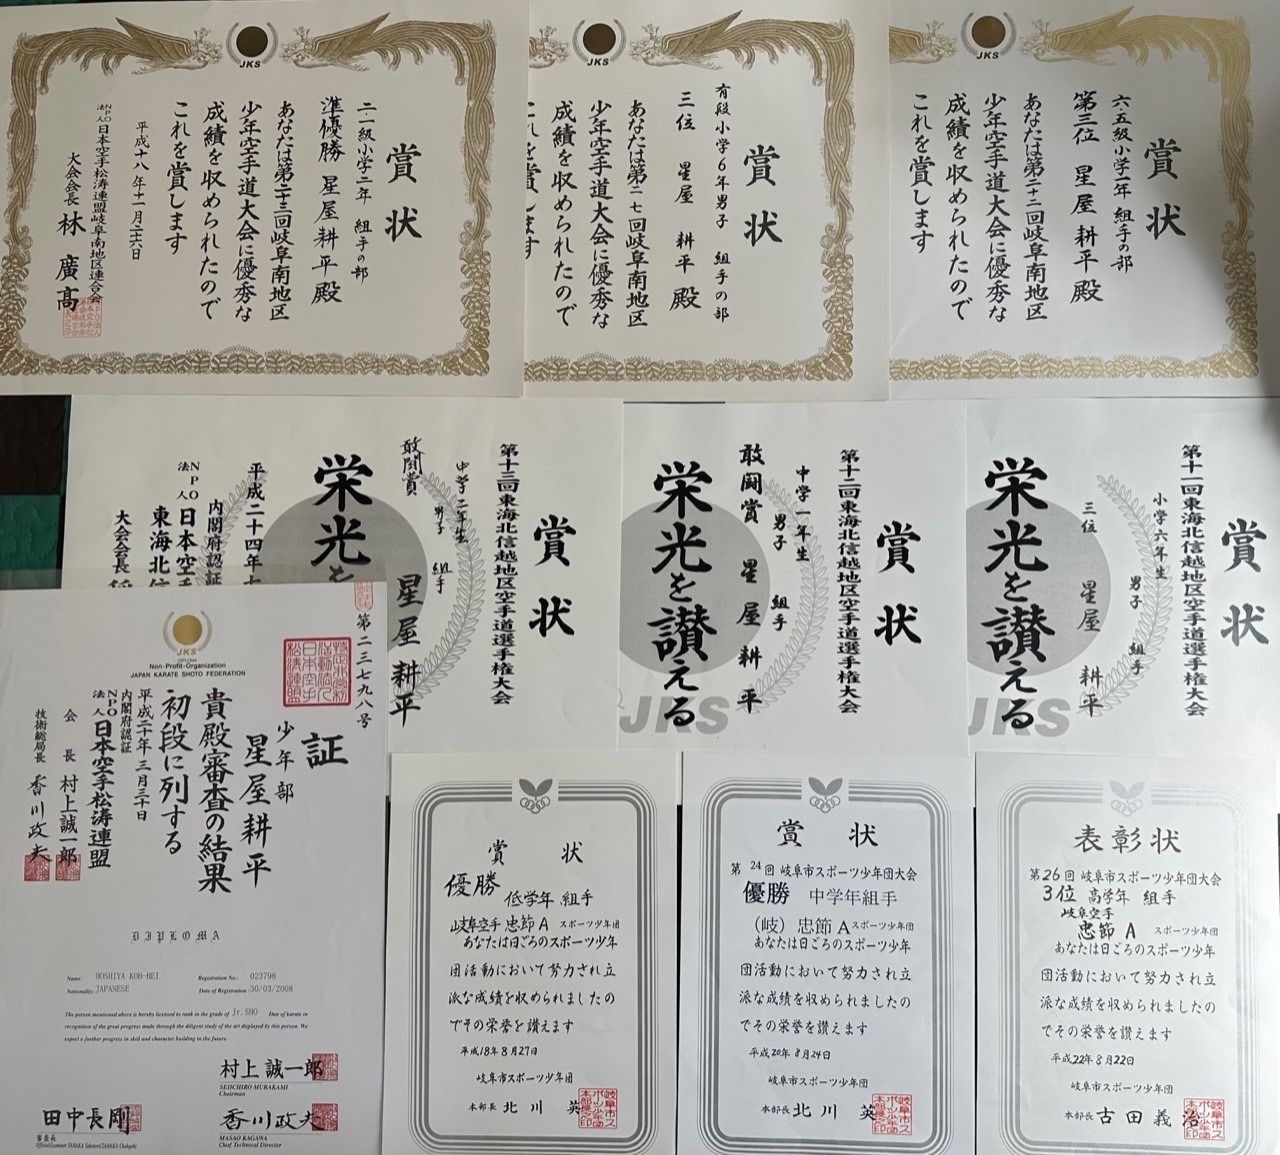 JKS
賞状
二・一級小学二年 組手の部
準優勝 星屋耕平殿
あなたは第二十三回岐阜南地区
少年空手道大会に優秀な
成績を収められたので
これを賞します
平成十八年十一月二十六日
NPO法人日本空手松涛連盟岐阜南地区連合会
大会会長 林 廣高
JKS
賞状
有段小学6年男子 組手の部
三位 星屋 耕平殿
あなたは第二七回岐阜南地区
少年空手道大会に優秀な
成績を収められたので
これを賞します
JKS
賞状
六・五級小学一年 組手の部
第三位 星屋耕平殿
あなたは第二十二回岐阜南地区
少年空手道大会に優秀な
成績を収められたので
これを賞します
賞状
第十三回東海北信越地区空手道選手権大会
中学二年生 男子 組手
敢闘賞 星屋耕平
栄光を
平成二十四年七
内閣府認証
NPO法人日本空手
東海北信
大会会長
賞状
第十二回東海北信越地区空手道選手権大会
中学一年生 男子 組手
敢闘賞 星屋耕平
栄光を讃える
JKS
賞状
第十一回東海北信越地区空手道選手権大会
小学六年生 男子 組手
三位 星屋 耕平
栄光を讃える
JKS
JKS
DIPLOMA
Non-Profit-Organization
JAPAN KARATE SHOTO FEDERATION
第二三七九八号
証
少年部
星屋耕平
貴殿審査の結果
初段に列する
平成二十年三月三十日
内閣府認証
NPO法人日本空手松涛連盟
会長 村上誠一郎
技術総局長 香川政夫
DIPLOMA
Name: HOSHIYA KOH-HEI Registration No.: 023798
Nationality: JAPANESE Date of Registration: 30/03/2008
The person mentioned above is hereby licensed to rank in the grade of Jr.SHO Dan of karate in
recognition of the great progress made through the diligent study of the art displayed by this person. We
expect a further progress in skill and character building in the future.
村上誠一郎
SEIICHIRO MURAKAMI
Chairman
田中長剛
審査長
香川政夫
MASAO KAGAWA
Chief Technical Director
賞状
優勝 低学年 組手
岐阜空手 忠節A スポーツ少年団
あなたは日ごろのスポーツ少年
団活動において努力され立
派な成績を収められましたの
でその栄誉を讃えます
平成18年8月27日
岐阜市スポーツ少年団
本部長 北川 英
賞状
第24回 岐阜市スポーツ少年団大会
優勝 中学年組手
(岐)忠節Aスポーツ少年団
あなたは日ごろのスポーツ少年
団活動において努力され立
派な成績を収められましたの
でその栄誉を讃えます
平成20年8月24日
岐阜市スポーツ少年団
本部長 北川 英
表彰状
第26回 岐阜市スポーツ少年団大会
3位 高学年 組手
岐阜空手
忠節A スポーツ少年団
あなたは日ごろのスポーツ少年
団活動において努力され立
派な成績を収められましたの
でその栄誉を讃えます
平成22年8月22日
岐阜市スポーツ少年団
本部長 古田義治